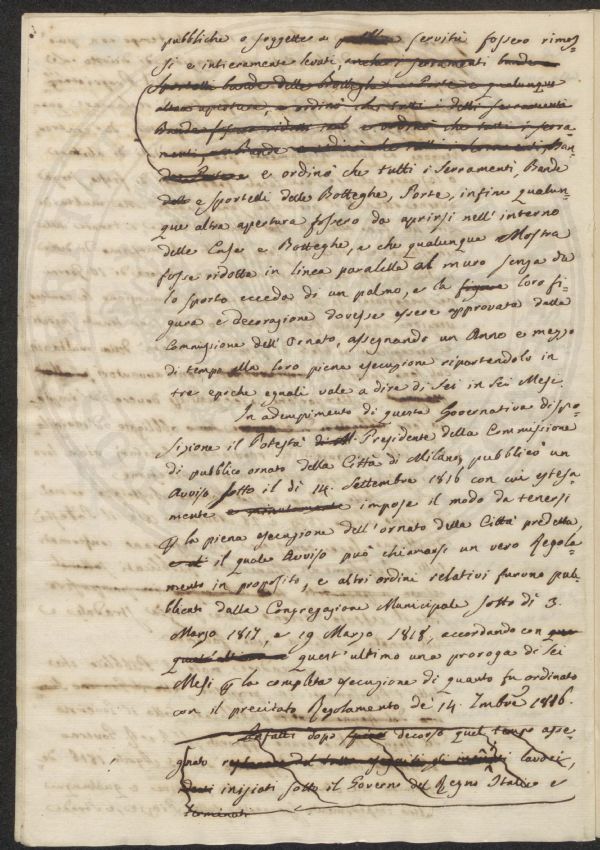 pubbliche o soggette a servitù fossero rimos=
si e intieramente levati, anche i serramenti bande
Sportelli bande delle Botteghe e Porte e qualunque
altra apertura, e ordinò che tutti i detti serramenti
Bande fossero ridotti e ordinò che tutti i serra=
menti, Bande e ordinò che tutti i serramenti, Ban=
de Porte e ordinò che tutti i Serramenti, Bande
e sportelli delle Botteghe, Porte, infine qualun=
que altra apertura fossero da aprirsi nell'interno
delle Case e Botteghe, e che qualunque Mostra
fosse ridotta in linea paralella al muro senza che
lo sporto ecceda di un palmo, e la figura loro fi=
gura e decorazione dovesse essere approvata dalla
Commissione dell'Ornato, assegnando un Anno e mezzo
di tempo alla loro piena esecuzione ripartendolo in
tre epoche eguali vale a dire di Sei in Sei Mesi.
In adempimento di questa Governativa dispo=
sizione il Potestà di M. Presidente della Commissione
di pubblico ornato della Città di Milano, pubblicò un
Avviso sotto il dì 14. Settembre 1816 con cui estesa=
mente e minutamente impose il modo da tenersi
per la piena esecuzione dell'ornato della Città predetta,
e di il quale Avviso può chiamarsi un vero Regola=
mento in proposito, e altri ordini relativi furono pub=
blicati dalla Congregazione Municipale sotto dì 3.
Marzo 1817, e 19 Marzo 1818, accordando con
quest'ultimo quest'ultimo una proroga di Sei
Mesi per la completa esecuzione di quanto fu ordinato
con il precitato Regolamento de' 14. 7mbre 1816.
Infatti dopo decorso quel tempo asse=
gnato del tutto eseguiti gli lavori,
iniziati sotto il Governo del Regno Italico e
terminati